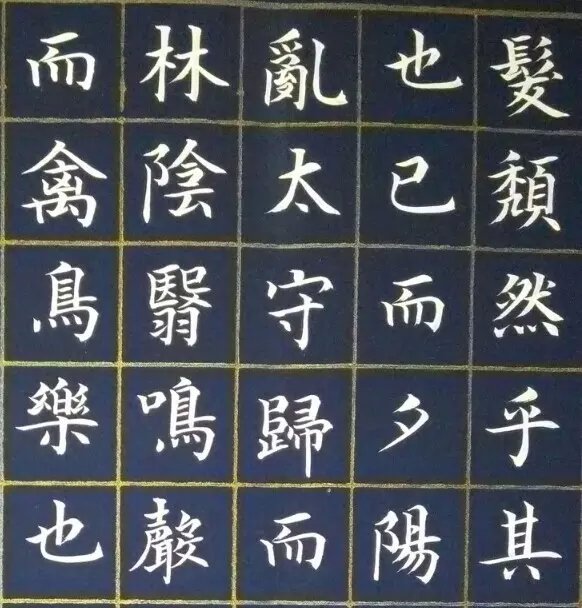 髮頹然乎其
也已而夕陽
亂太守歸而
林陰翳鳴聲
而禽鳥樂也